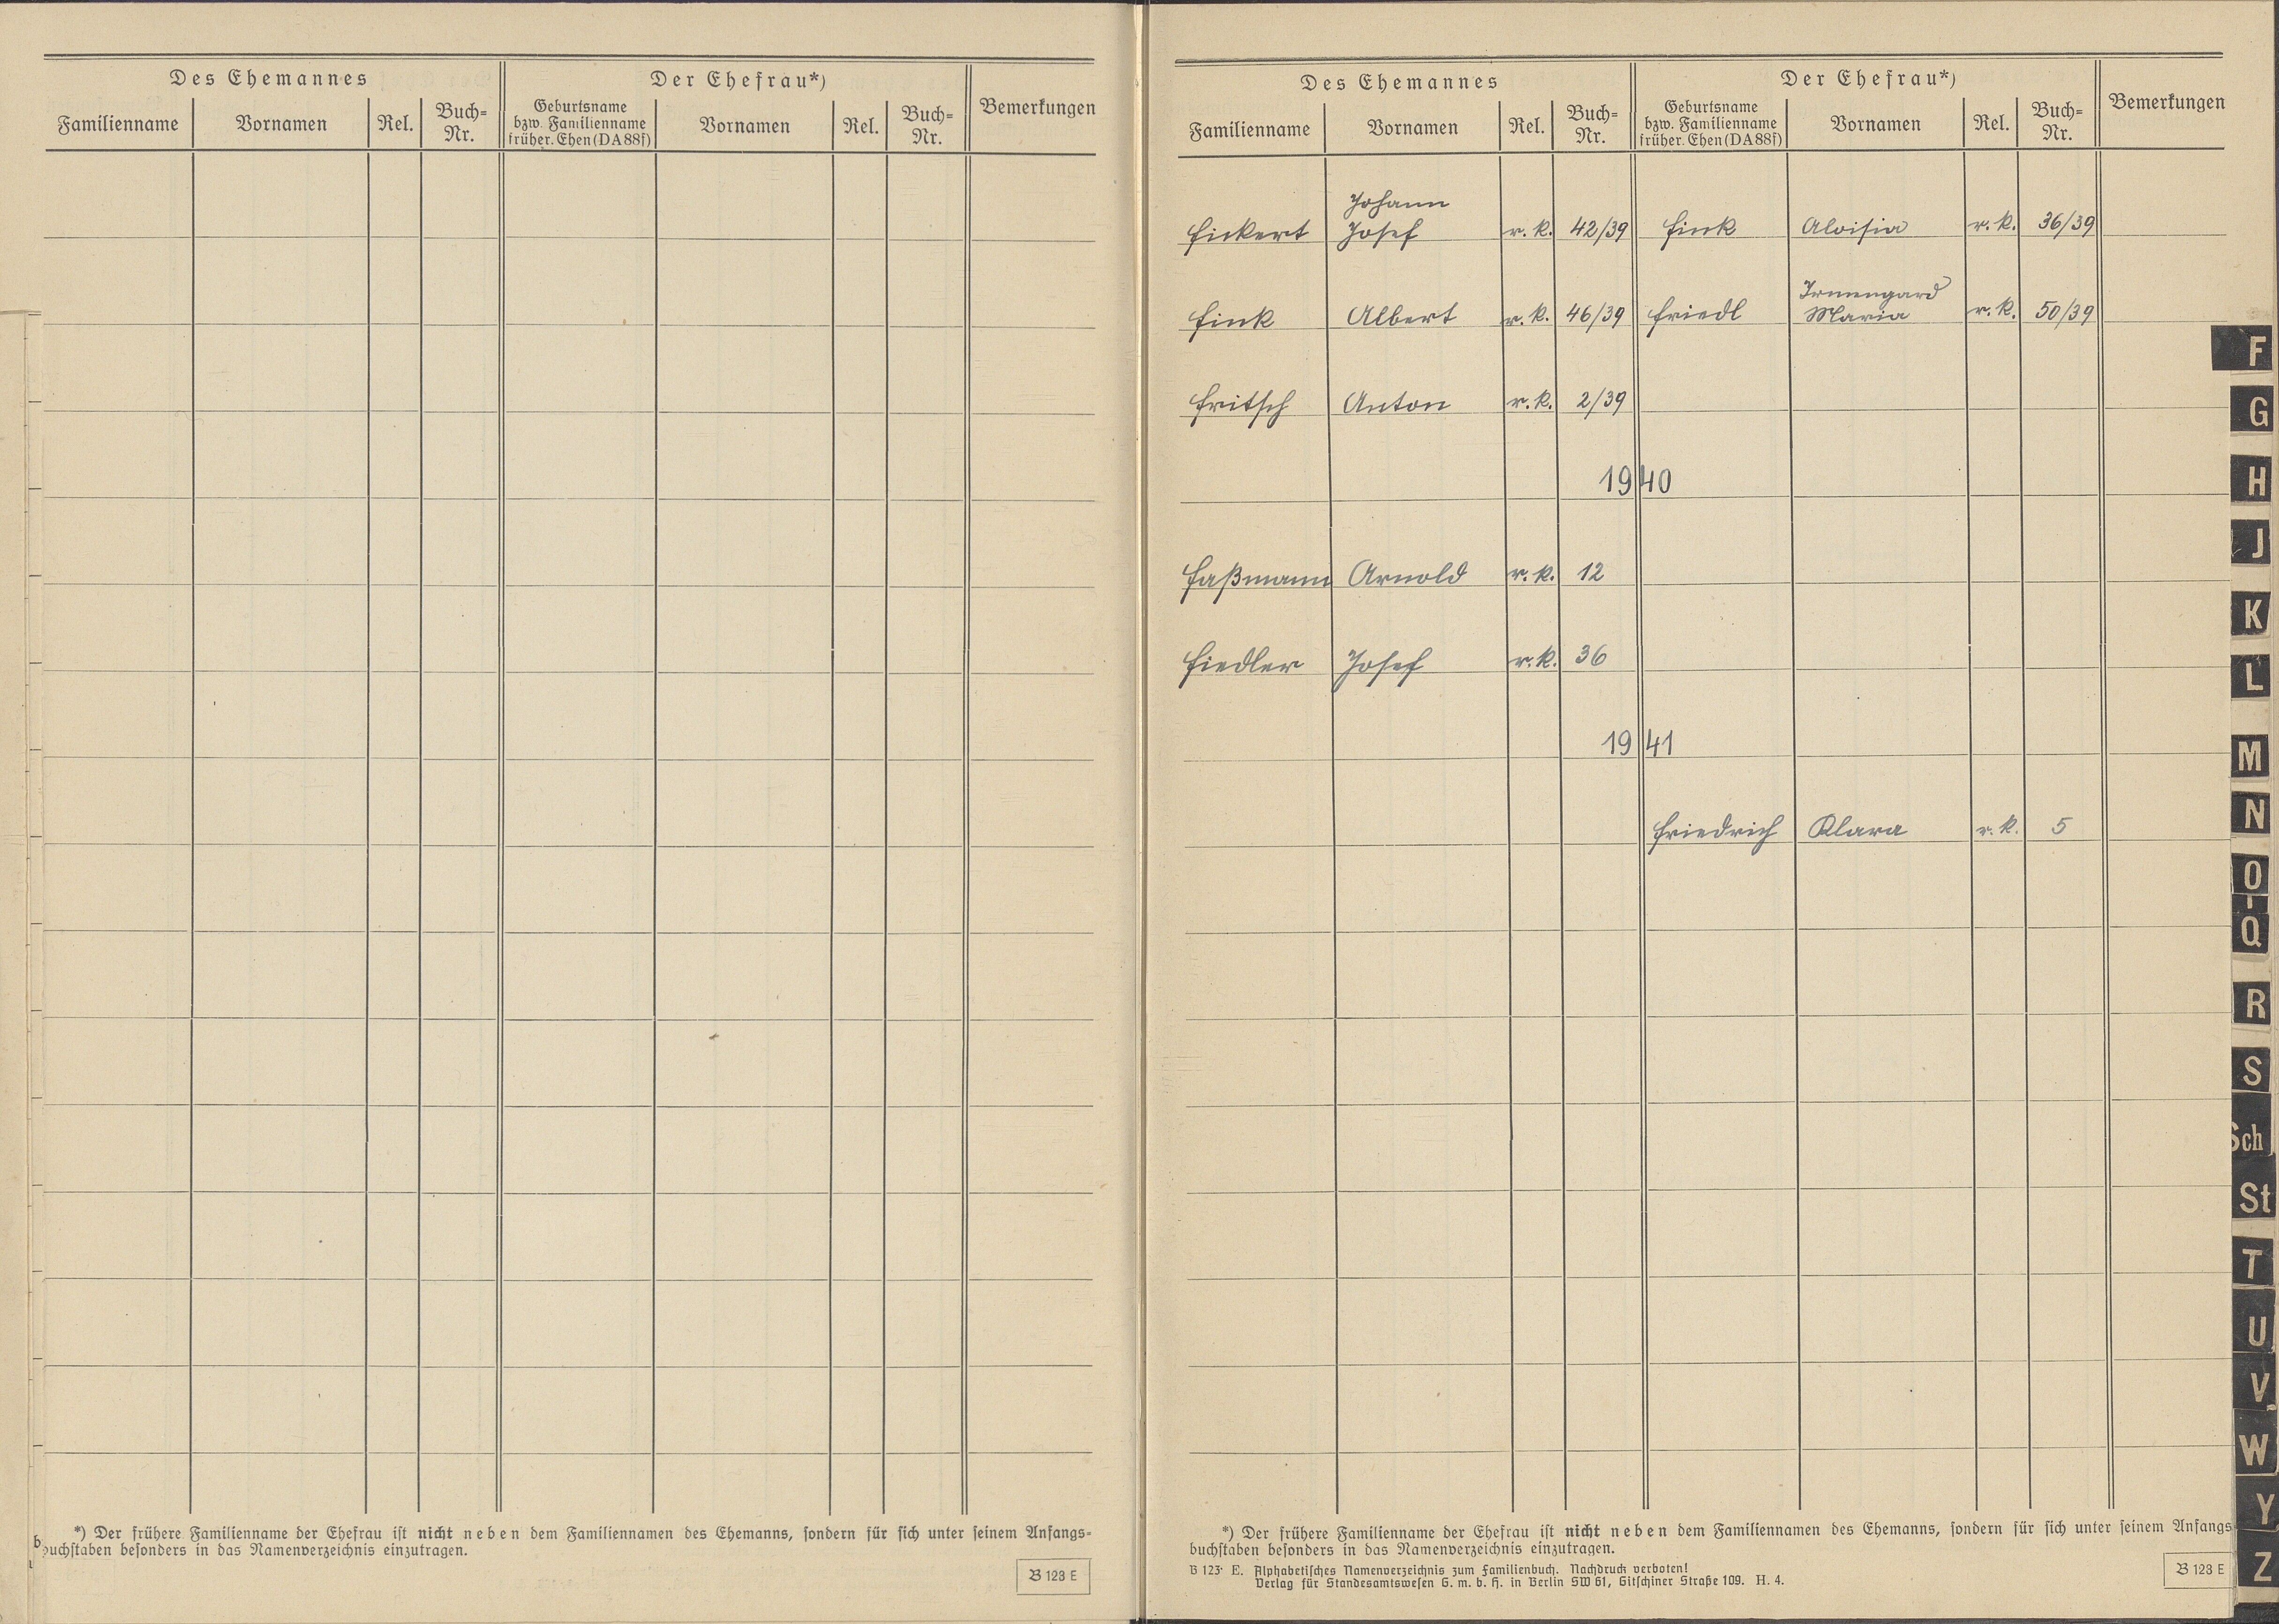 Des Ehemannes
Der Ehefrau*)
Familienname
Vornamen
Rel.
Buch-
Nr.
Geburtsname
bzw. Familienname
früher. Ehen (DA 88f)
Vornamen
Rel.
Buch-
Nr.
Bemerkungen
*) Der frühere Familienname der Ehefrau ist nicht neben dem Familiennamen des Ehemanns, sondern für sich unter seinem Anfangs-
buchstaben besonders in das Namenverzeichnis einzutragen.
B 123 E
Des Ehemannes
Der Ehefrau*)
Familienname
Vornamen
Rel.
Buch-
Nr.
Geburtsname
bzw. Familienname
früher. Ehen (DA 88f)
Vornamen
Rel.
Buch-
Nr.
Bemerkungen
Johann
Fickert Josef r. k. 42/39 Fink Aloisia r. k. 36/39
Irmengard
Fink Albert r. k. 46/39 Friedl Maria r. k. 50/39
Fritsch Anton r. k. 2/39
1940
Faßmann Arnold r. k. 12
Fiedler Josef r. k. 36
1941
Friedrich Klara r. k. 5
*) Der frühere Familienname der Ehefrau ist nicht neben dem Familiennamen des Ehemanns, sondern für sich unter seinem Anfangs
buchstaben besonders in das Namenverzeichnis einzutragen.
B 123 E. Alphabetisches Namenverzeichnis zum Familienbuch. Nachdruck verboten!
Verlag für Standesamtswesen G. m. b. H. in Berlin SW 61, Gitschiner Straße 109. H. 4.
B 123 E
F
G
H
J
K
L
M
N
O
Q
R
S
Sch
St
T
U
V
W
Y
Z